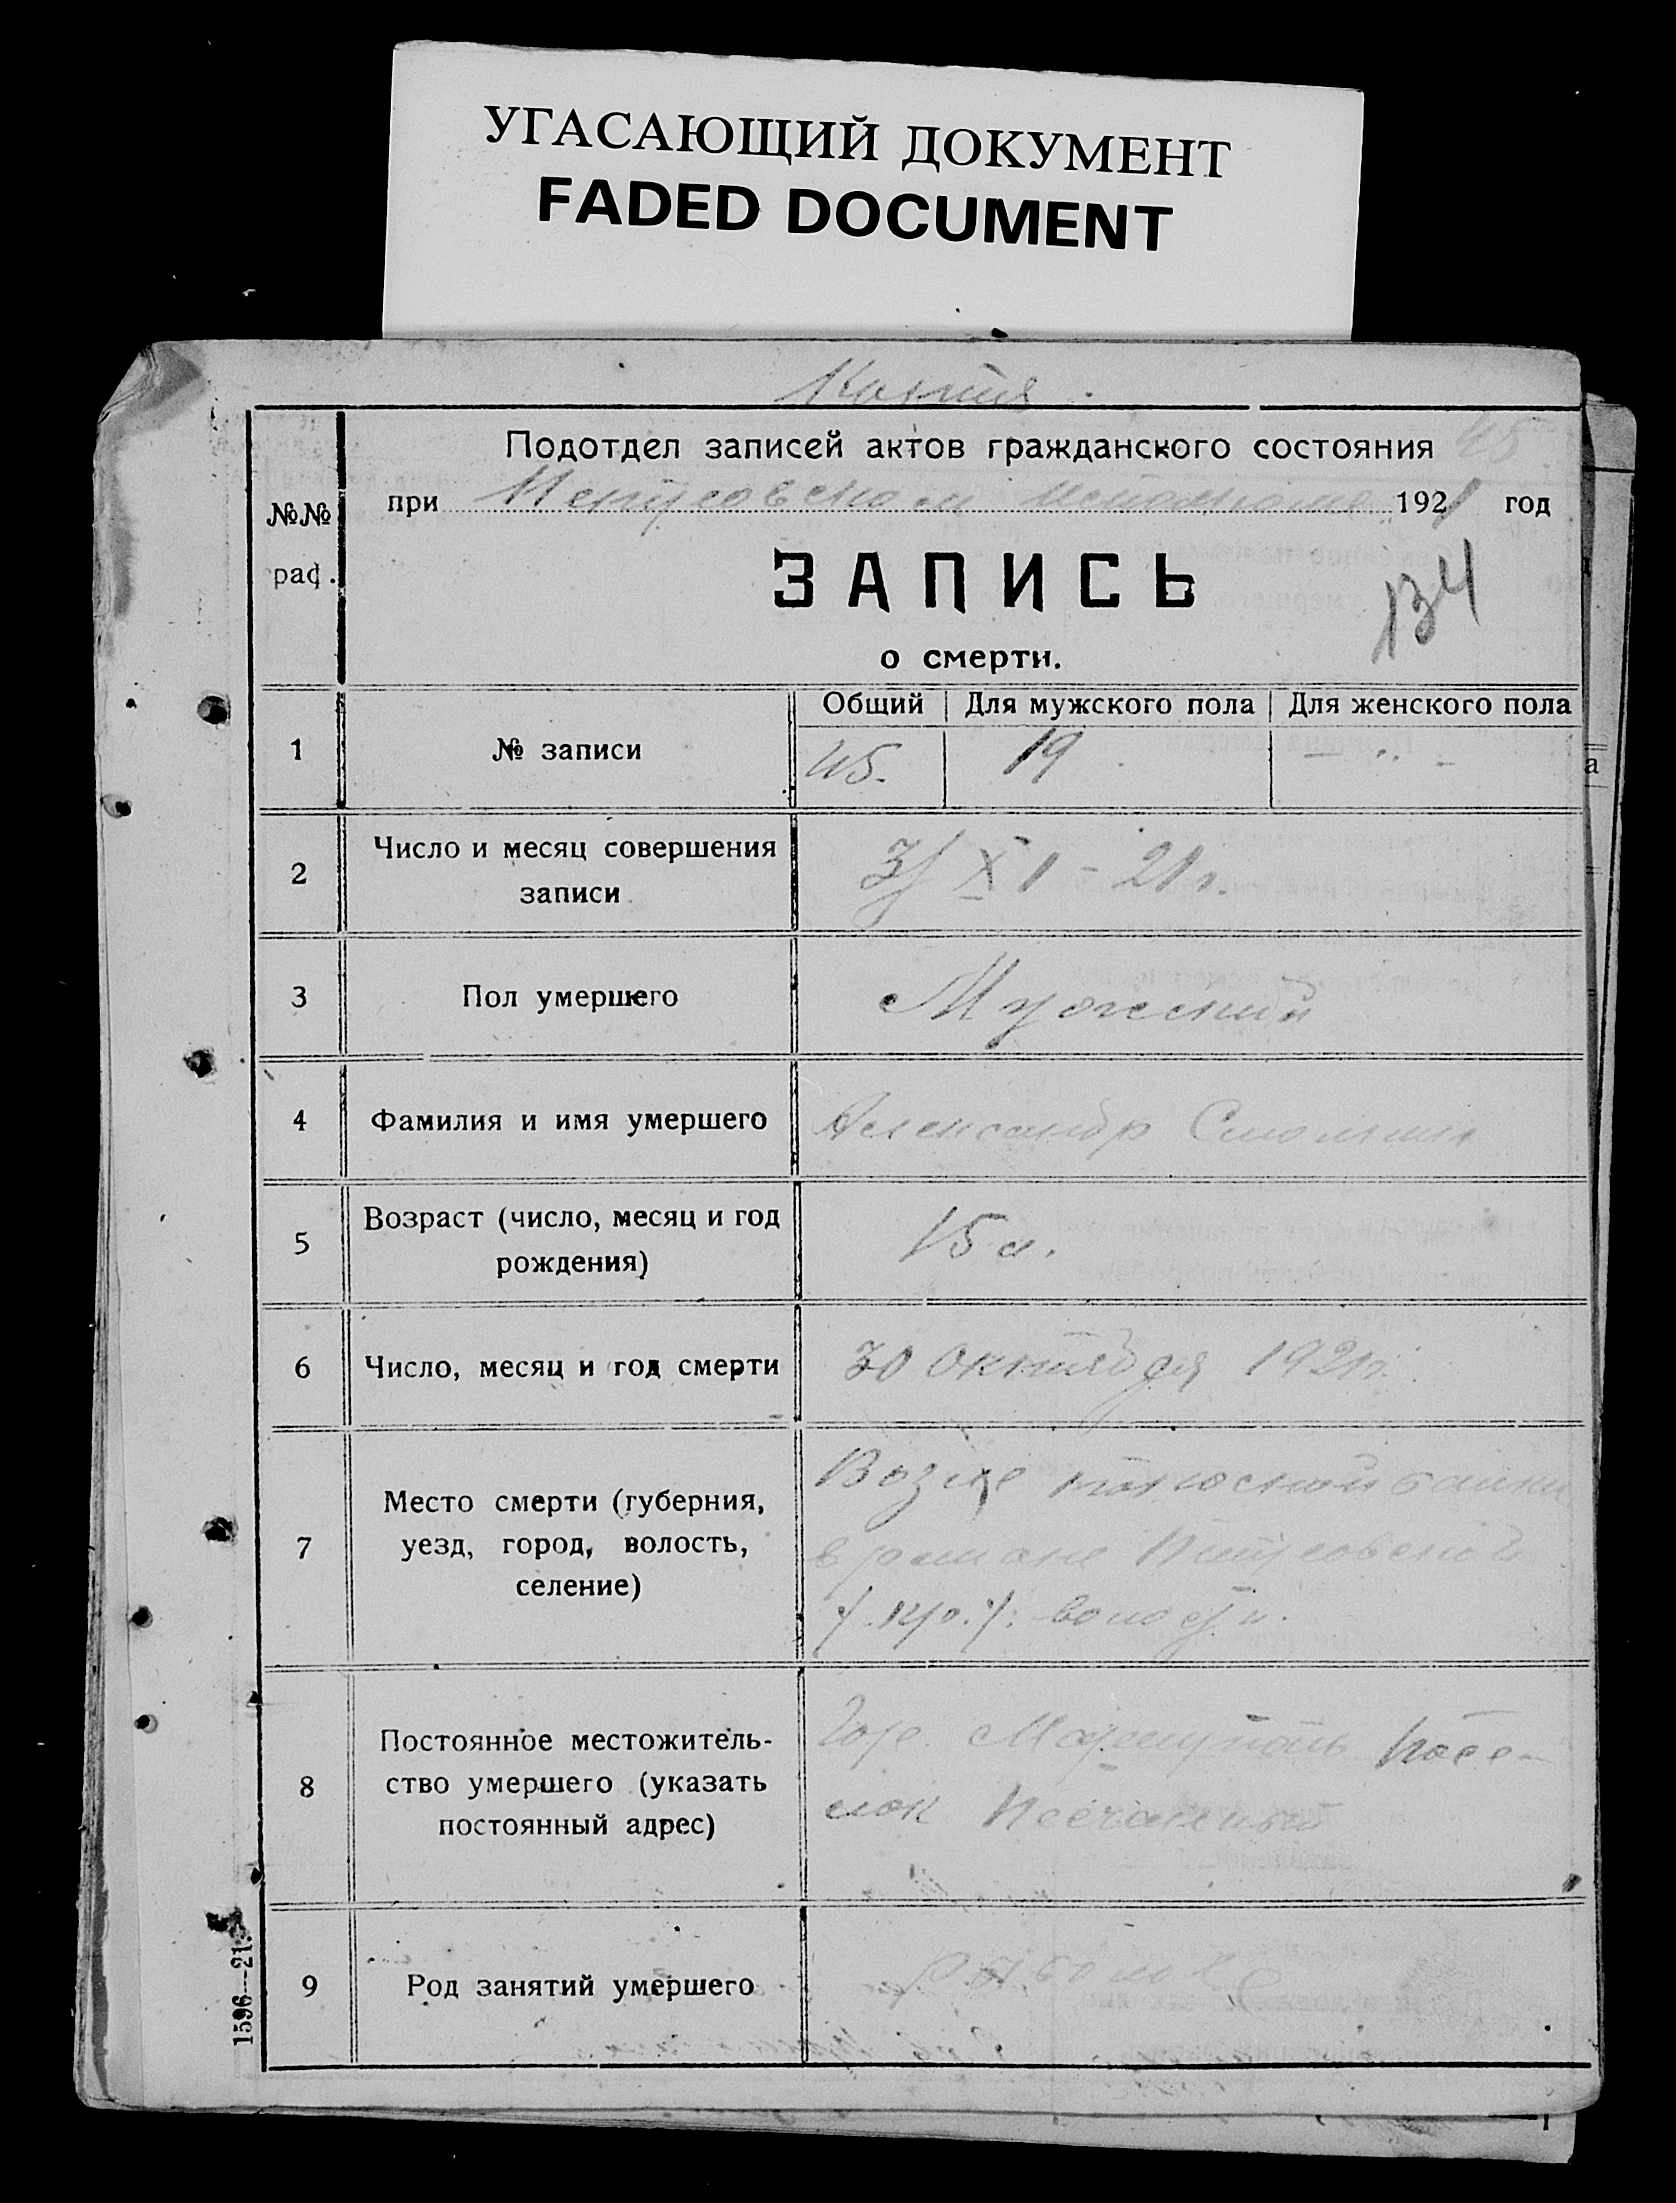 УГАСАЮЩИЙ ДОКУМЕНТ
FADED DOCUMENT
Копия
45
Подотдел записей актов гражданского состояния
№№ раф.
при 1921 год
ЗАПИСЬ
134
о смерти.
Общий Для мужского пола Для женского пола
1 № записи 45. 19 —
2 Число и месяц совершения
записи 3/XI - 21 г.
3 Пол умершего Мужской
4 Фамилия и имя умершего Александр
5 Возраст (число, месяц и год
рождения) 15 л.
6 Число, месяц и год смерти 30 октября 1921 г.
7 Место смерти (губерния,
уезд, город, волость,
селение)
Возле косы
в районе
волости.
8 Постоянное местожитель-
ство умершего (указать
постоянный адрес)
Гор. Мариуполь посе-
лок Песчаный
9 Род занятий умершего
1596—21.
а